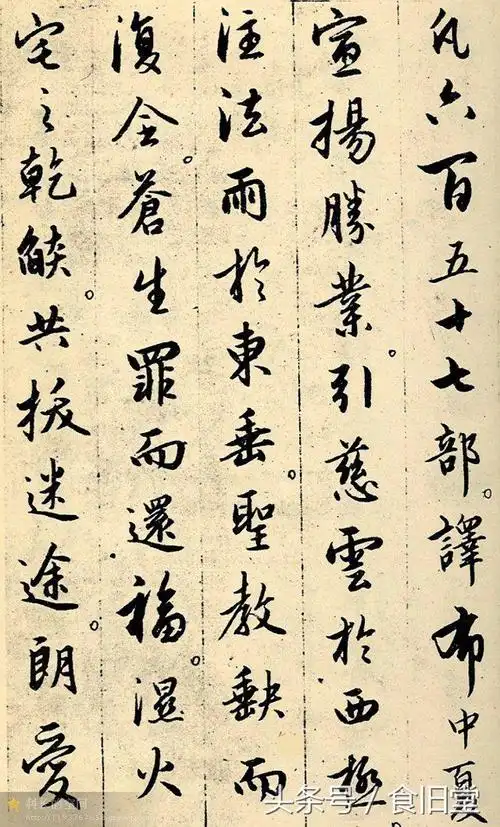 凡六百五十七部。譯布中夏
宣揚勝業。引慈雲於西極
注法雨於東垂。聖教缺而
復全。蒼生罪而還福。濕火
宅之乾燄。共拔迷途。朗愛
头条号 / 食旧堂